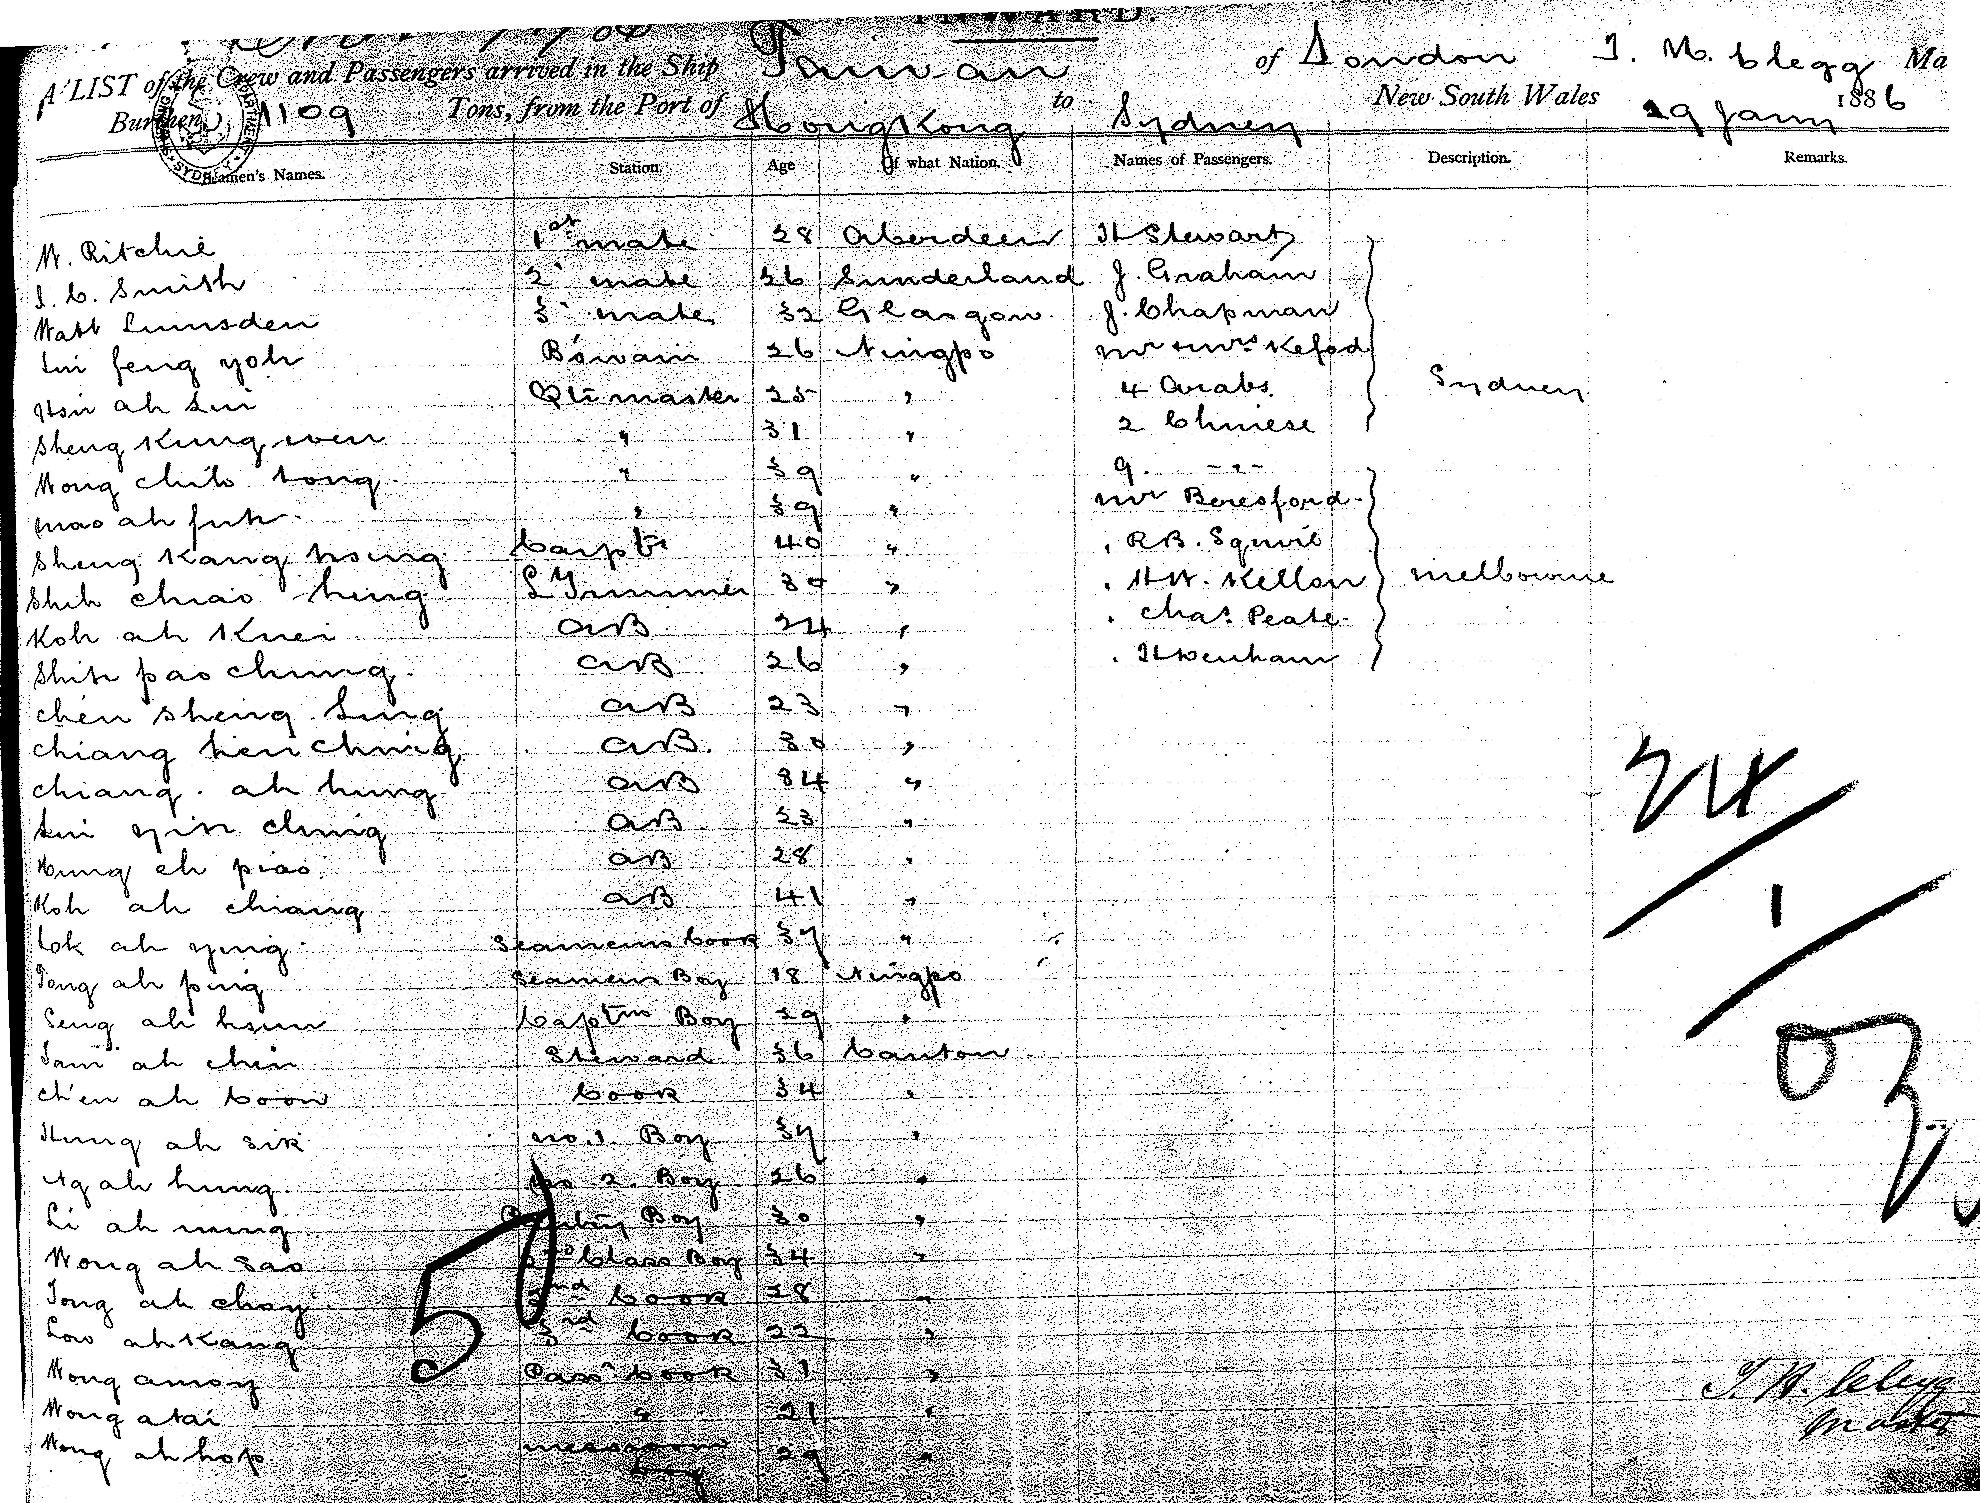 INWARD.
A LIST of the Crew and Passengers arrived in the Ship Taiwan of London T. M. Clegg Ma
Burthen 1109 Tons, from the Port of HongKong to Sydney New South Wales 29 Jany 1886
Seamen's Names. Station. Age Of what Nation. Names of Passengers. Description. Remarks.
W. Ritchie 1st mate 28 Aberdeen H Stewart
J. C. Smith 2 mate 26 Sunderland J. Graham
Watt Lumsden 3 mate 32 Glasgow J. Chapman
Lui feng yoh Bswain 26 Ningpo Mr & Mrs
Hsu ah Lui Qtr master 25 " 4 Arabs Sydney
Sheng Kung wen " 31 " 2 Chinese
Wong chih tong " 39 " 9. - " -
mao ah fuh " 39 " Mr Beresford
Sheng Kang hsing Carptr 40 " " R.B.
Shih chiao hing L Trimmer 30 " " H W. Kellon Melbourne
Koh ah Kuei AB 24 " " Chas Peate
Shih pao chung AB 26 " " H Denham
chen sheng Ling AB 23 "
chiang hien ching AB. 30 "
chiang. ah hung AB 34 "
Lui yin ching AB 23 "
Hung ah piao AB 28 "
Koh ah chiang AB 41 "
Lok ah ying Seamens Cook 37 "
Tong ah ping Seamens Boy 18 Ningpo
Seng ah hsun Captns Boy 29 "
Tam ah chin Steward 36 Canton
Ch'en ah Coon Cook 34 "
Hung ah sik no. 1 Boy 37 "
Ng ah hung no 2. Boy 26 "
Li ah ming Pantry Boy 30 "
Wong ah sao Class Boy 34 "
Tong ah choy 2nd Cook 28 "
Low ah Kang 3rd Cook 22 "
Wong amoy Pass Cook 31 "
Wong atai " 21 "
Wong ah hop messroom boy 29 "
24/1/03
57
T. M. Clegg
Master